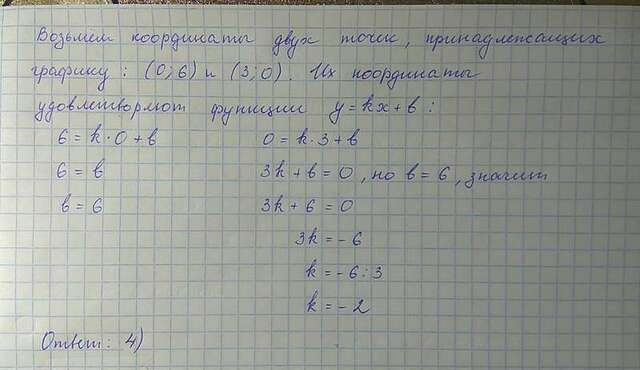 Возьмем координаты двух точек, принадлежащих
графику: (0; 6) и (3; 0). Их координаты
удовлетворяют функции y = kx + b :
6 = k · 0 + b 0 = k · 3 + b
6 = b 3k + b = 0, но b = 6, значит
b = 6 3k + 6 = 0
3k = - 6
k = - 6 : 3
k = - 2
Ответ: 4)